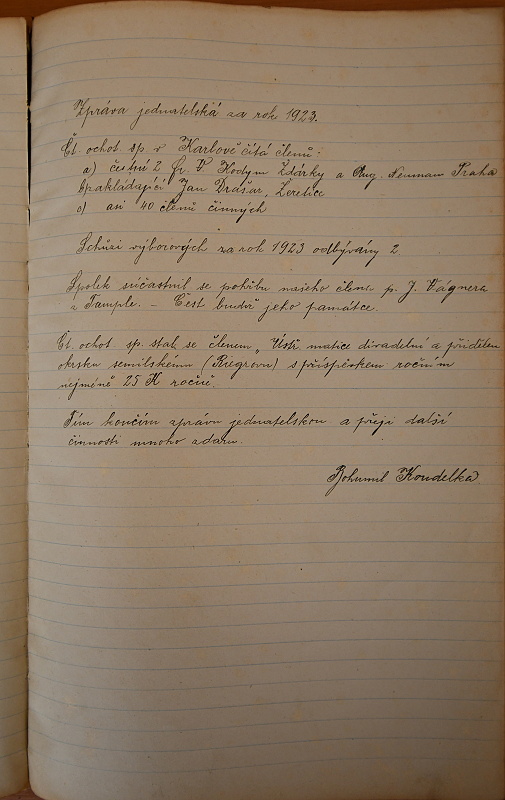 Zpráva jednatelská za rok 1923.
Čt. ochot sp. v Karlově čítá členů:
a) čestní 2 Fr. V. Hodym Ždárky a Aug. Neuman Praha
b) zakládající Jan Drašar, Leretice
c) asi 40 členů činných
Schůzí výborových za rok 1923 odbývány 2.
Spolek súčastnil se pohřbu našeho člena p. J. Vágnera
z Tample. – Čest budiž jeho památce.
Čt. ochot. sp. stal se členem „Ústř. matice divadelní a přidělen
okrsku semilskému (Riegrovu) s příspěvkem ročním
nejméně 25 K ročně.
Tím končím zprávu jednatelskou a přeji další
činnosti mnoho zdaru.
Bohumil Koudelka.